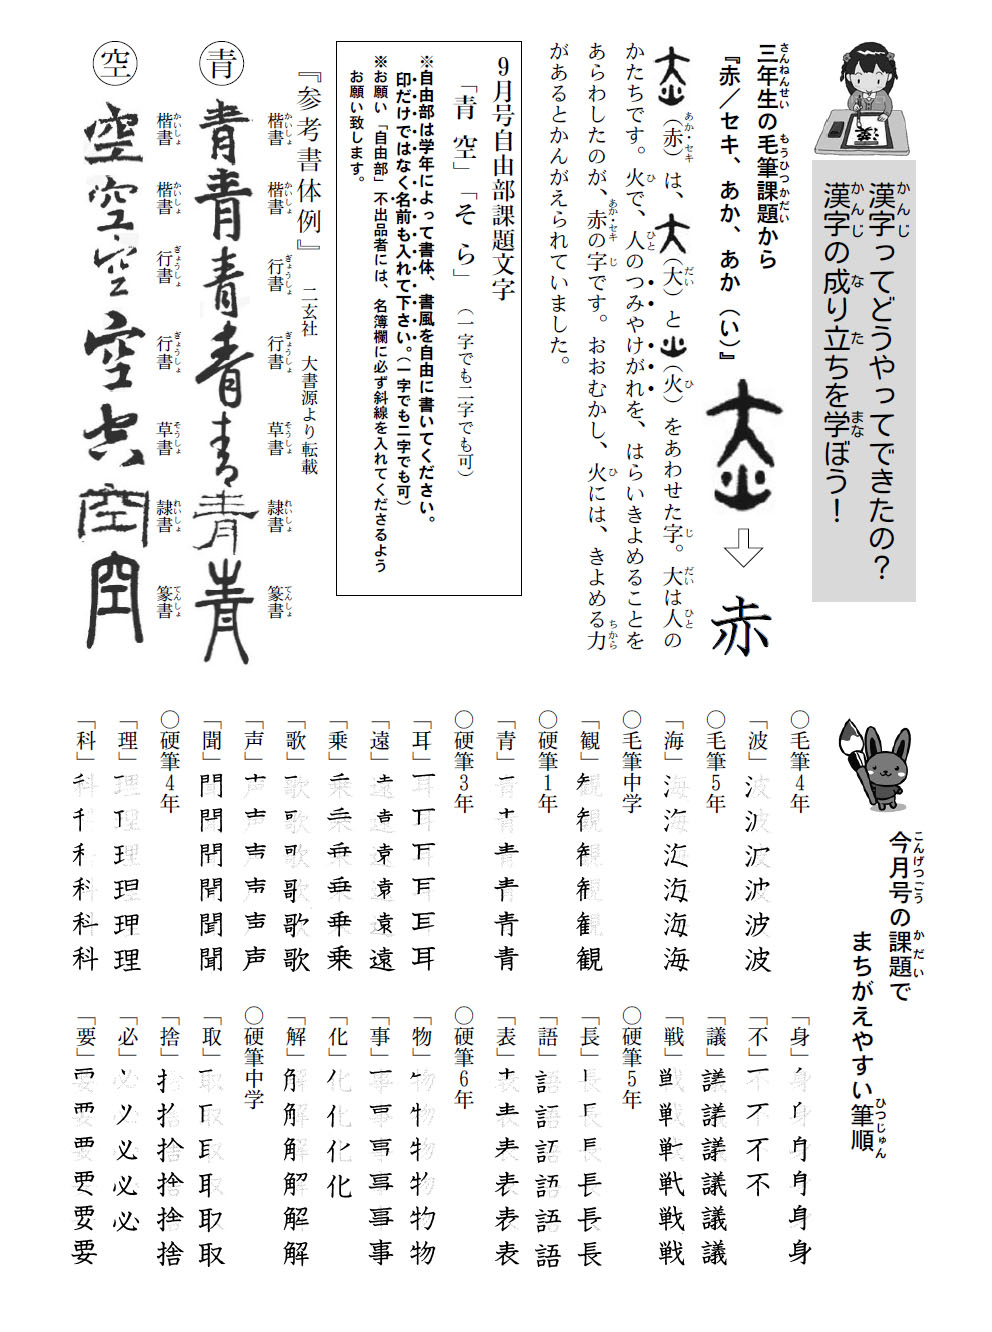 漢字ってどうやってできたの？
漢字の成り立ちを学ぼう！
三年生の毛筆課題から
『赤／セキ、あか、あか（い）』
赤
（赤）は、（大）と（火）をあわせた字。大は人の
かたちです。火で、人のつみやけがれを、はらいきよめることを
あらわしたのが、赤の字です。おおむかし、火には、きよめる力
があるとかんがえられていました。
9月号自由部課題文字
「青空」「そら」（一字でも二字でも可）
※自由部は学年によって書体、書風を自由に書いてください。
印だけではなく名前も入れて下さい。（一字でも二字でも可）
※お願い「自由部」不出品者には、名簿欄に必ず斜線を入れてくださるよう
お願い致します。
『参考書体例』 二玄社 大書源より転載
楷書 楷書 行書 行書 草書 隷書 篆書
青 青 青 青 青 青 青 青
楷書 楷書 行書 行書 草書 隷書 篆書
空 空 空 空 空 空 空 空
今月号の課題で
まちがえやすい筆順
○毛筆4年
「波」
○毛筆5年
「海」
○毛筆中学
「観」
○硬筆1年
「青」
○硬筆3年
「耳」
「遠」
「乗」
「歌」
「声」
「聞」
○硬筆4年
「理」
「科」
「身」
「不」
「議」
「戦」
○硬筆5年
「長」
「語」
「表」
○硬筆6年
「物」
「事」
「化」
「解」
○硬筆中学
「取」
「捨」
「必」
「要」